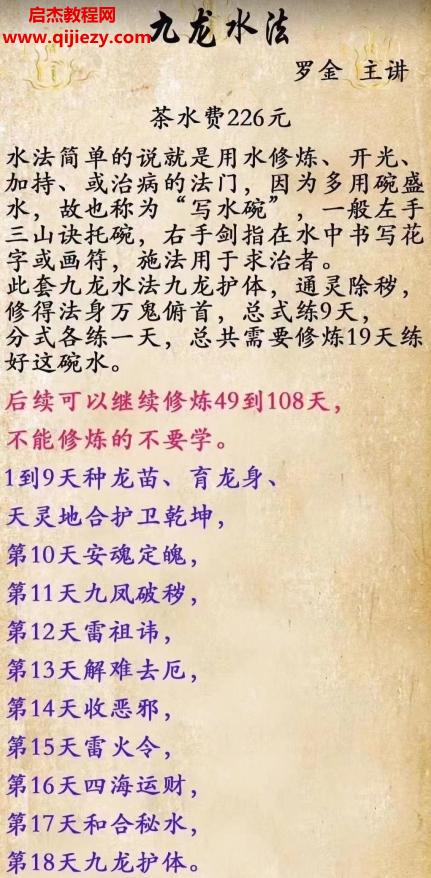 启杰教程网
www.qijiezy.com
九龙水法
罗金 主讲
茶水费226元
水法简单的说就是用水修炼、开光、
加持、或治病的法门，因为多用碗盛
水，故也称为“写水碗”，一般左手
三山诀托碗，右手剑指在水中书写花
字或画符，施法用于求治者。
此套九龙水法九龙护体，通灵除秽，
修得法身万鬼俯首，总式练9天，
分式各练一天，总共需要修炼19天练
好这碗水。
后续可以继续修炼49到108天，
不能修炼的不要学。
1到9天种龙苗、育龙身、
天灵地合护卫乾坤，
第10天安魂定魄，
第11天九凤破秽，
第12天雷祖讳，
第13天解难去厄，
第14天收恶邪，
第15天雷火令，
第16天四海运财，
第17天和合秘水，
第18天九龙护体。